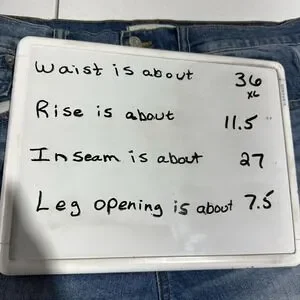 Waist is about 36
XL
Rise is about 11.5
Inseam is about 27
Leg opening is about 7.5